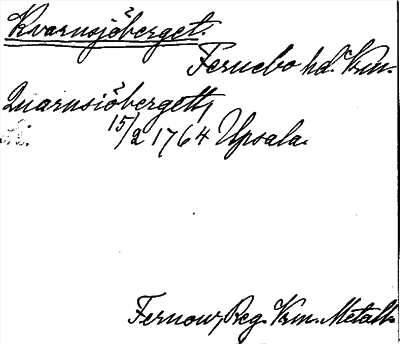 Kvarnsjöberget.
Fernebo hd. Vrm.
Quarnsiöbergett,
15/2 1764 Upsala.
Fernow, Reg. Vrm. Metall.